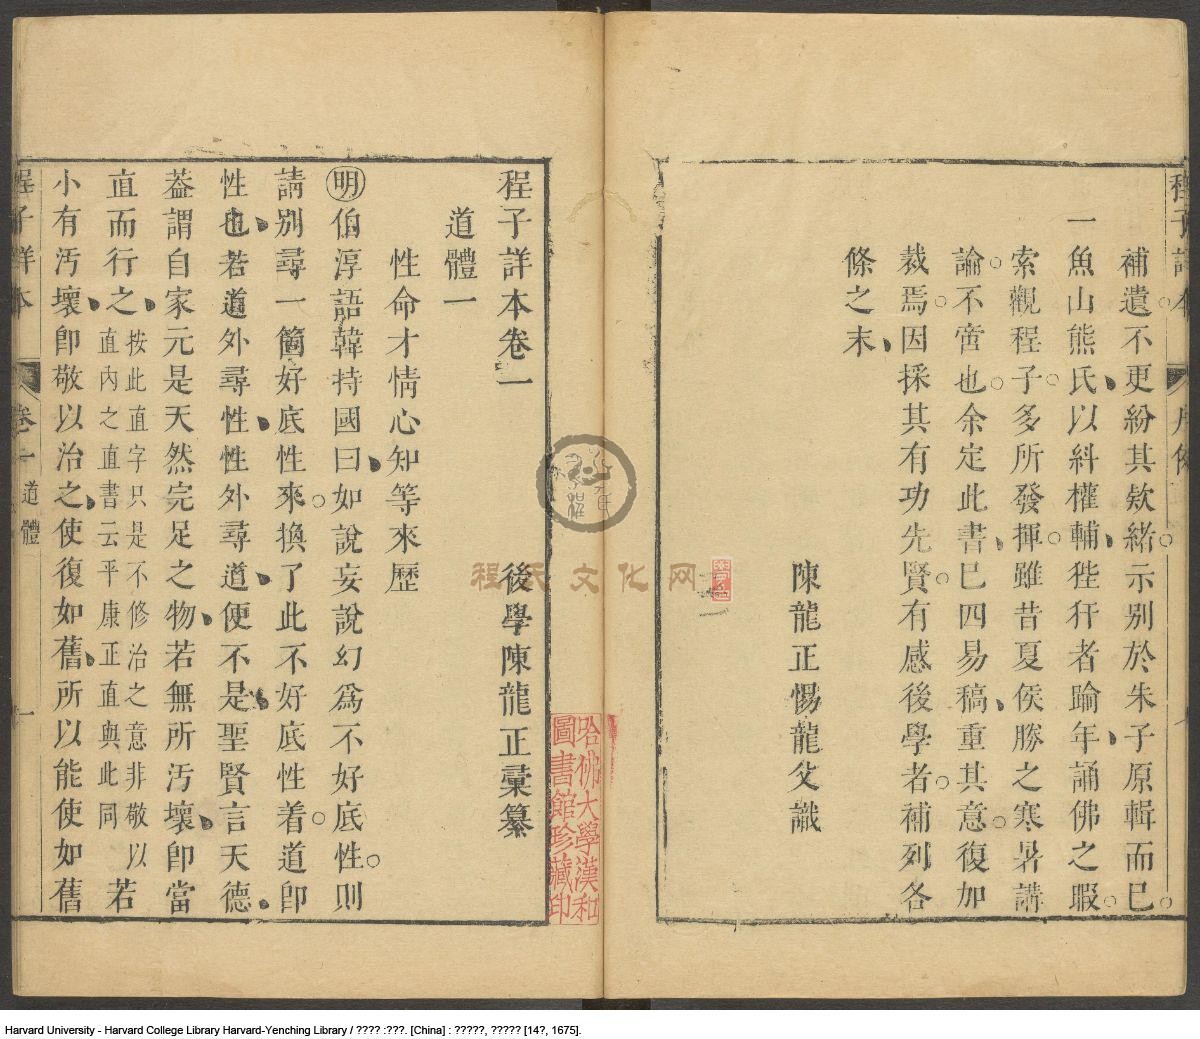 補遺不更紛其欸緒示別於朱子原輯而已
一魚山熊氏以糾權輔狴犴者踰年誦佛之暇
索觀程子多所發揮雖昔夏侯勝之寒暑講
論不啻也余定此書巳四易稿重其意復加
裁焉因採其有功先賢有感後學者補列各
條之末
陳龍正惕龍父識
二
程子詳本卷一 後學陳龍正彙纂
道體一
性命才情心知等來歷
明伯淳語韓持國曰如說妄說幻爲不好底性則
請別尋一箇好底性來換了此不好底性着道卽
性也若道外尋性性外尋道便不是聖賢言天德
葢謂自家元是天然完足之物若無所汚壞卽當
直而行之按此直字只是不修治之意非敬以
直內之直書云平康正直與此同若
小有汚壞卽敬以治之使復如舊所以能使如舊
程子詳本 卷一 道體 一
哈佛大學漢和
圖書館珍藏印
程氏文化网
Harvard University - Harvard College Library Harvard-Yenching Library / ???? :???. [China] : ?????, ????? [14?, 1675].